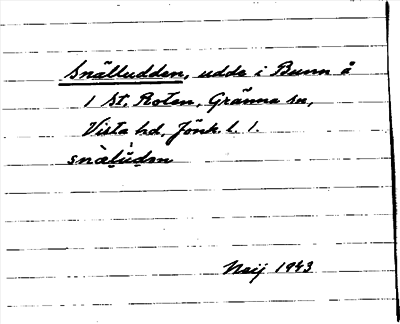 Snälludden, udde i Bunn å
1 St. Roten, Gränna sn,
Vista hd, Jönk. l. 1.
snàlu̇̀dən
Neij 1943